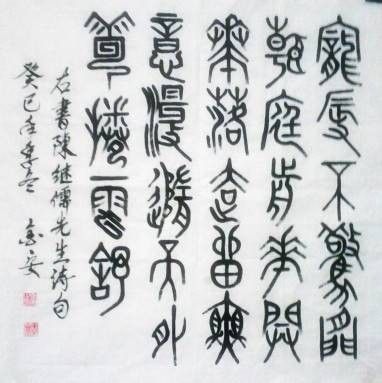 寵辱不驚閒
看庭前華開
華落去留無
意漫隨天外
雲捲雲舒
右書陳继儒先生诗句
癸巳年季冬